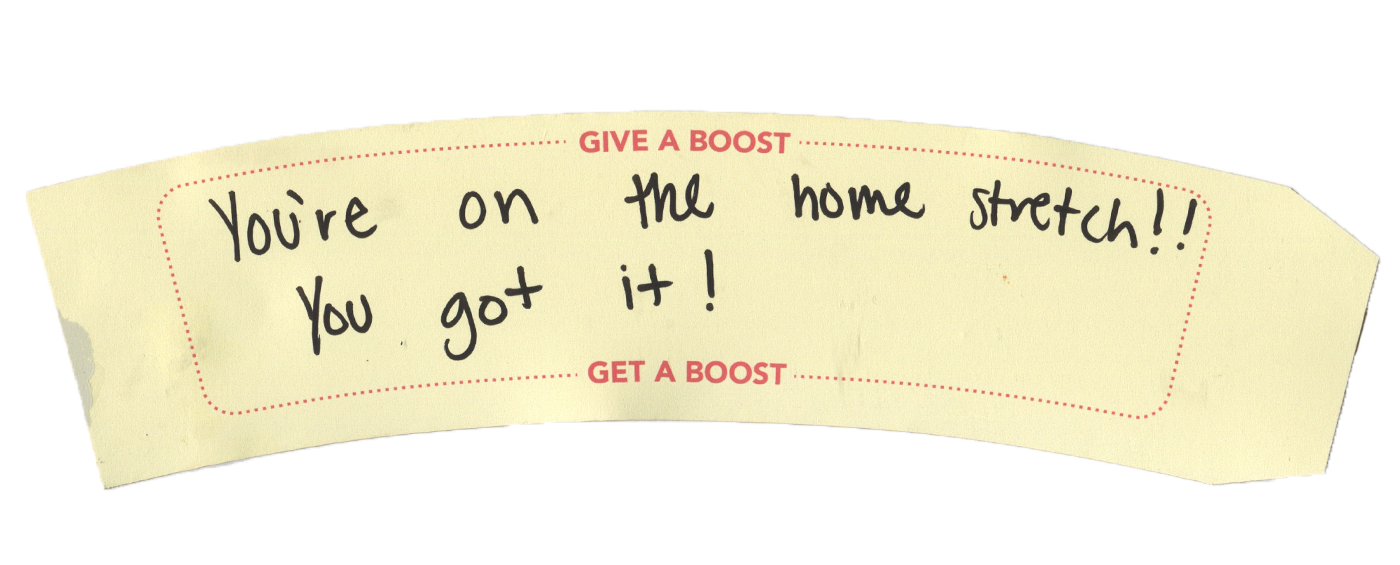 GIVE A BOOST
You're on the home stretch!!
You got it!
GET A BOOST